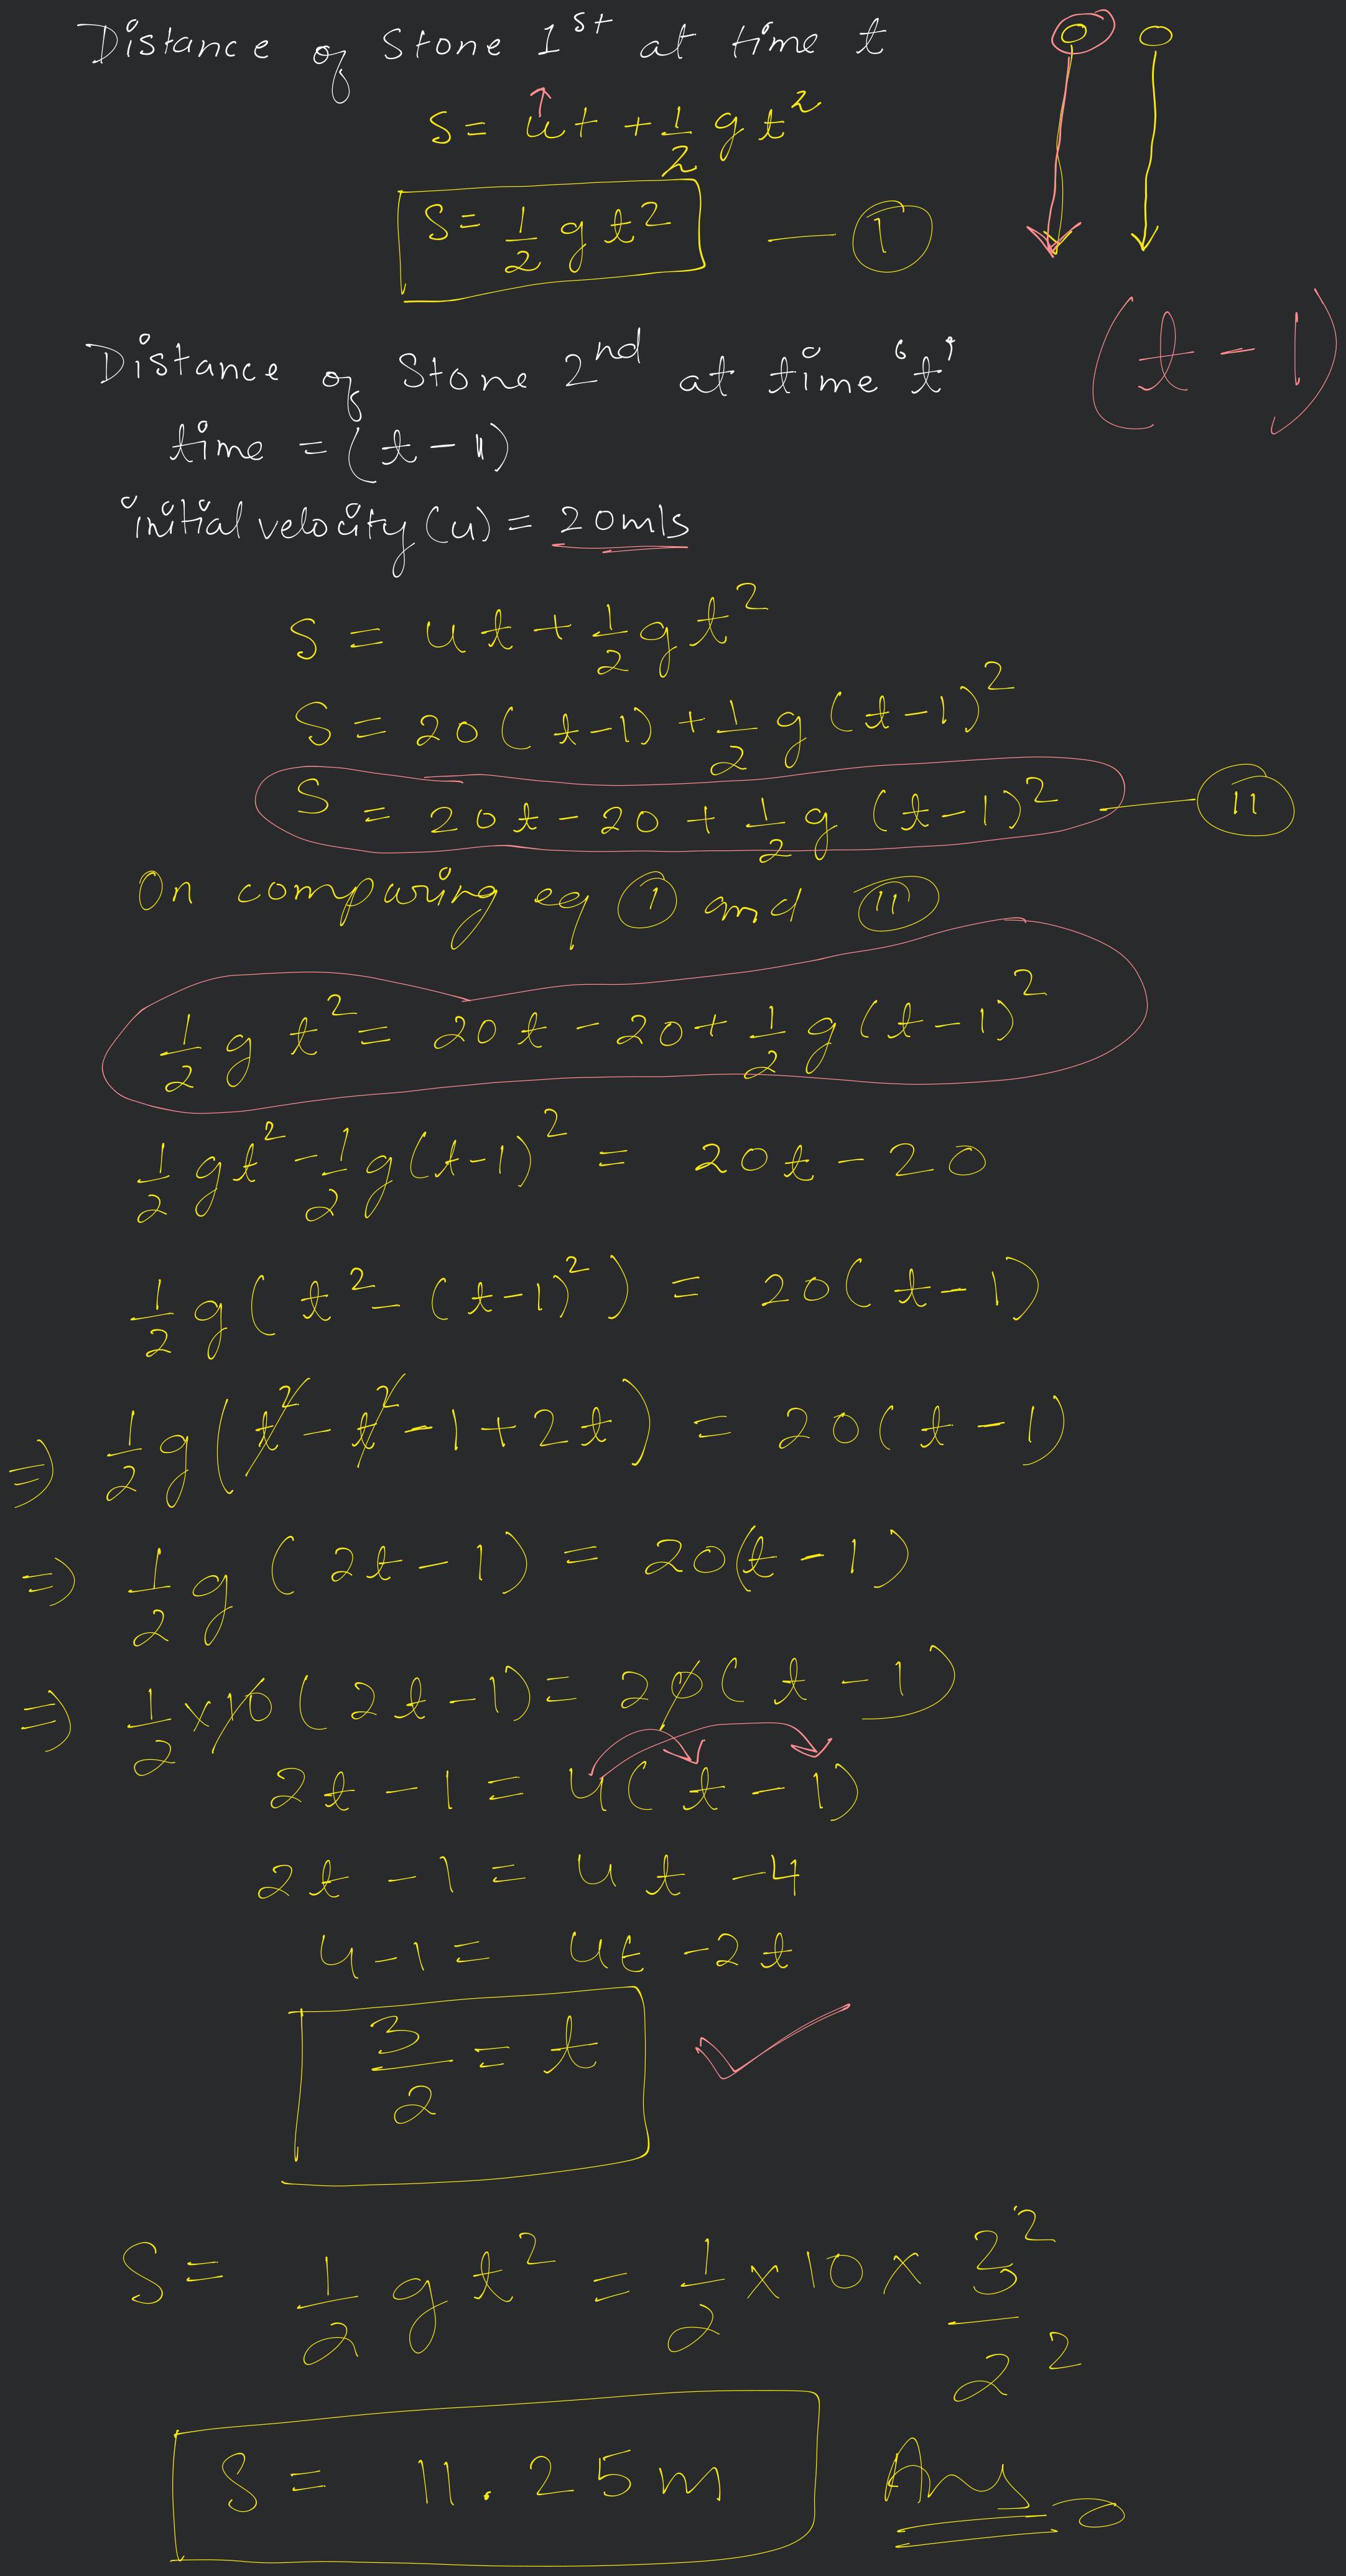 Distance of Stone 1st at time t
S = ut + 1/2 g t²
S = 1/2 g t² — I
(t - 1)
Distance of Stone 2nd at time 't'
time = (t - 1)
initial velocity (u) = 20m/s
S = ut + 1/2 g t²
S = 20(t-1) + 1/2 g (t-1)²
S = 20t - 20 + 1/2 g (t-1)² — II
On comparing eq I and II
1/2 g t² = 20t - 20 + 1/2 g (t-1)²
1/2 gt² - 1/2 g(t-1)² = 20t - 20
1/2 g (t² - (t-1)²) = 20(t-1)
⇒ 1/2 g (t² - t² - 1 + 2t) = 20(t-1)
⇒ 1/2 g (2t-1) = 20(t-1)
⇒ 1/2 × 10 (2t-1) = 20(t-1)
2t - 1 = 4(t-1)
2t - 1 = 4t - 4
4 - 1 = 4t - 2t
3/2 = t
S = 1/2 g t² = 1/2 × 10 × 3²/2²
S = 11.25m Ans